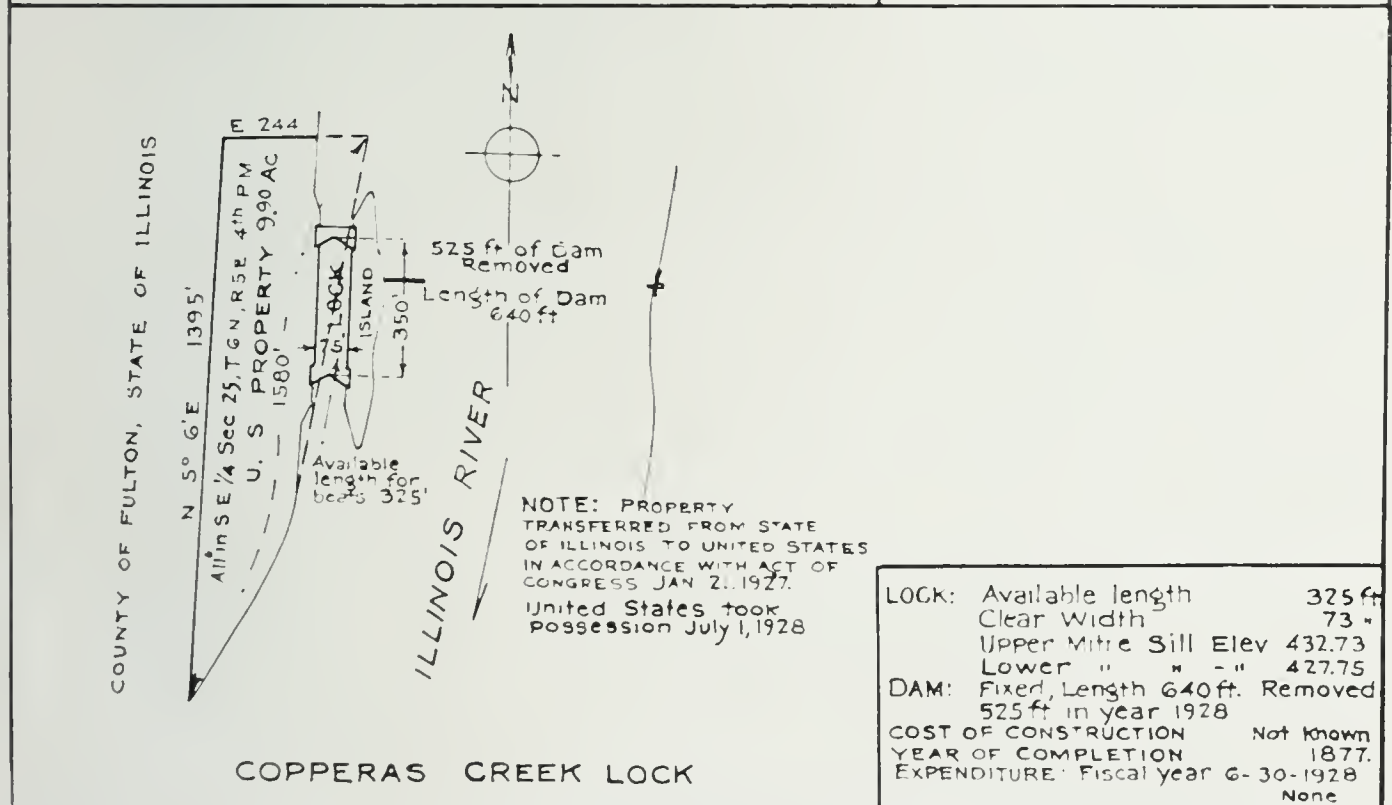 E 244
N
COUNTY OF FULTON, STATE OF ILLINOIS
N 5° 6' E 1395'
All in SE ¼ Sec 25, T6N, R5E 4th PM
U. S PROPERTY 9.90 AC
1580'
LOCK
75
ISLAND
350'
525 ft of Dam
Removed
Length of Dam
640 ft
Available
length for
boats 325'
ILLINOIS RIVER
NOTE: PROPERTY
TRANSFERRED FROM STATE
OF ILLINOIS TO UNITED STATES
IN ACCORDANCE WITH ACT OF
CONGRESS JAN 21. 1927.
United States took
Possession July 1, 1928
COPPERAS CREEK LOCK
LOCK: Available length 325 ft
Clear Width 73 "
Upper Mitre Sill Elev 432.73
Lower " " - " 427.75
DAM: Fixed, Length 640 ft. Removed
525 ft in year 1928
COST OF CONSTRUCTION Not Known
YEAR OF COMPLETION 1877.
EXPENDITURE: Fiscal year 6-30-1928
None